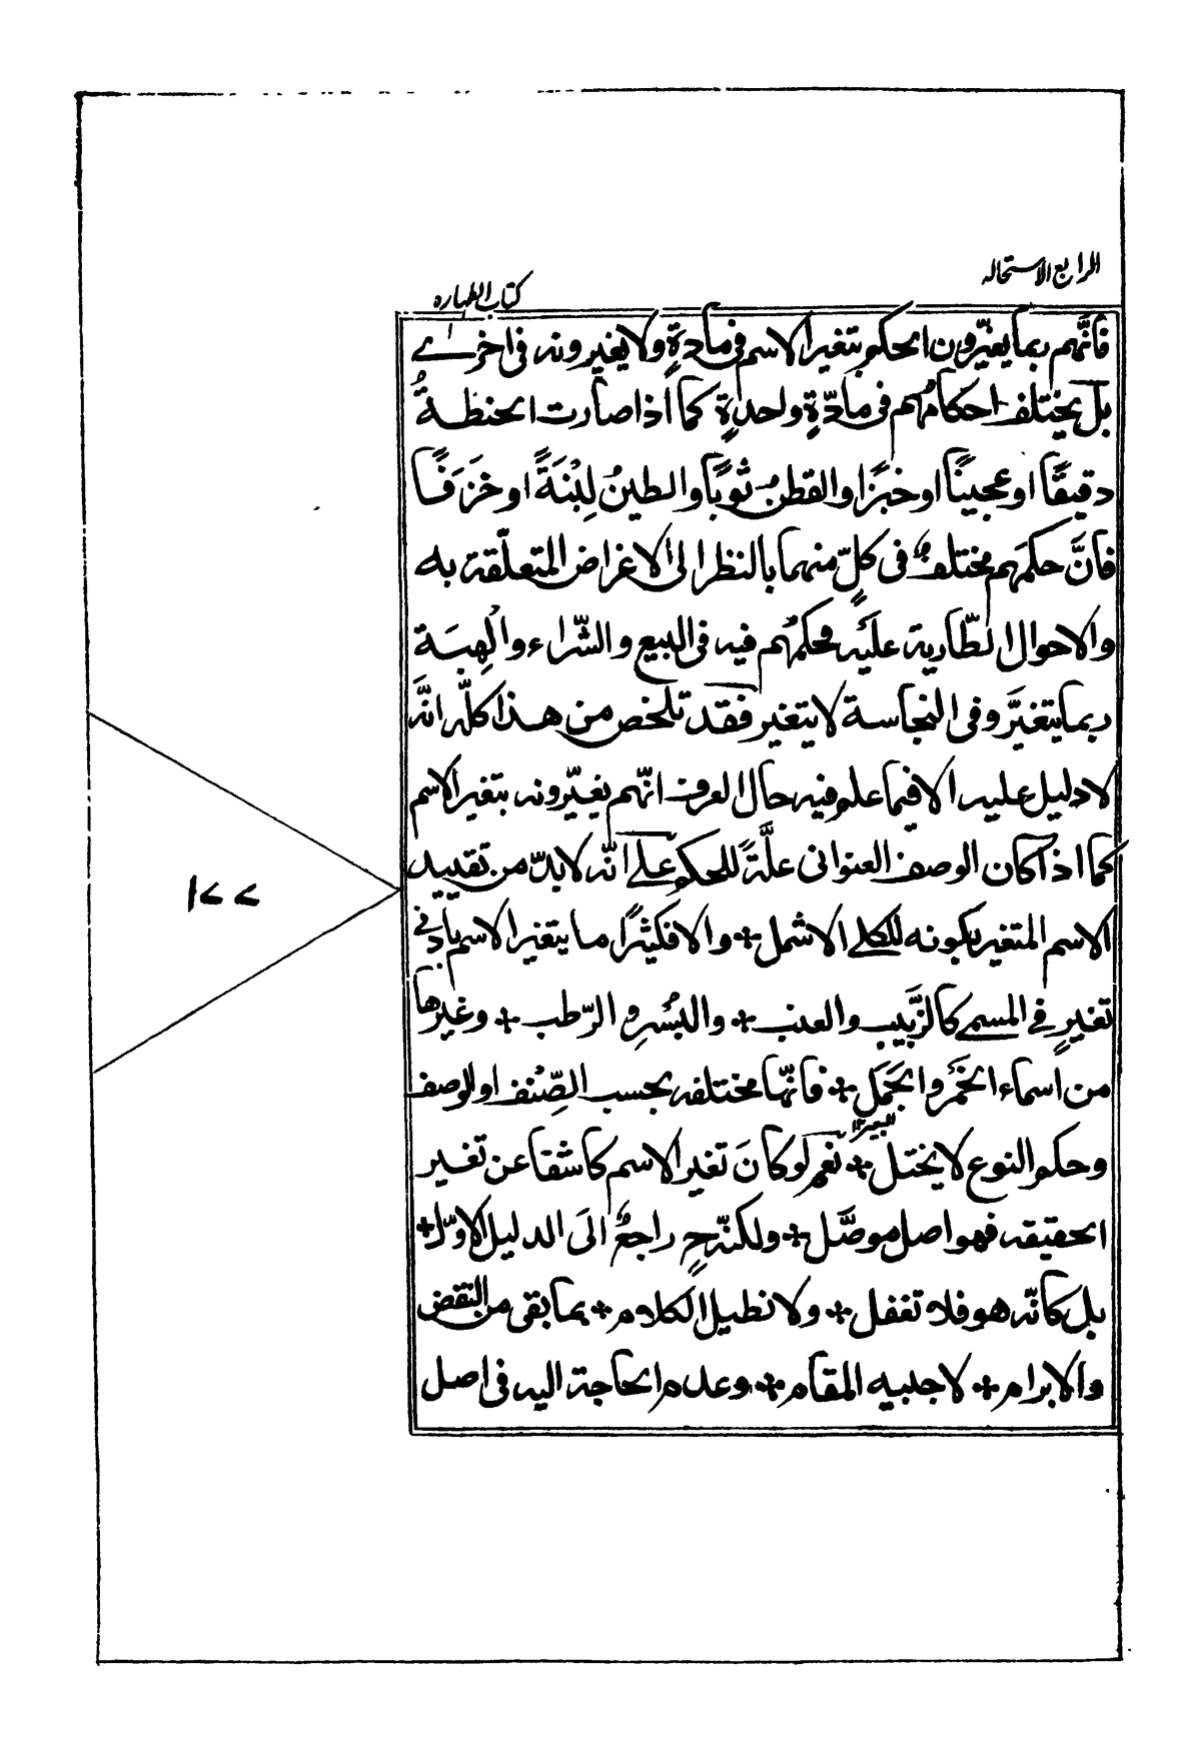 الرابع الاستحاله
كتاب الطهاره
فانّهم ربما يغيّرون الحكم بتغير الاسم فى مادةٍ ولا يغيرونه فى اخرى
بل يختلف احكامُهم فى مادّةٍ واحدةٍ كما اذا صارت الحنظةُ
دقيقًا او عجينًا او خبزًا والقطنُ ثوبًا والطينُ لِبْنَةً او خَزَفًا
فانَّ حكمَهم مختلفٌ فى كلٍّ منهما بالنظر الى الاغراض المتعلّقة به
والاحوال الطّارية عليه فحكمُهم فيه فى البيع والشّراء والْهِبَة
ربما يتغيَّر وفى النجاسة لا يتغير فقد تلخص من هذا كلّه انَّه
لا دليل عليه الا فيما علم فيه حال العرف انّهم يغيّرونه بتغير الاسم
كما اذا كان الوصف العنوانى علَّةً للحكم على انّه لا بدّ من تقييد
الاسم المتغير بكونه للكلى الاشمل + والا فكثيرًا ما يتغير الاسم بأدنى
تغيرٍ فى المسمى كالزَّبيب والعنب + والبُسْر و الرّطب + وغيرها
من أسماء الخَمْر والجَمَل + فانّها مختلفه بحسب الصِّنف او الوصف
للبعير ١٢
وحكم النوع لا يختل + نعم لو كانَ تغير الاسم كاشفا عن تغير
الحقيقه فهو اصل موصَّل + ولكنّه ح راجعٌ الَى الدليل الاوّل +
بل كانّه هو فلا تغفل + ولا نطيل الكلام + بما بقى من النقض
والابرام + لاجنبيه المقام + وعدم الحاجة اليه فى اصل
١٧٧